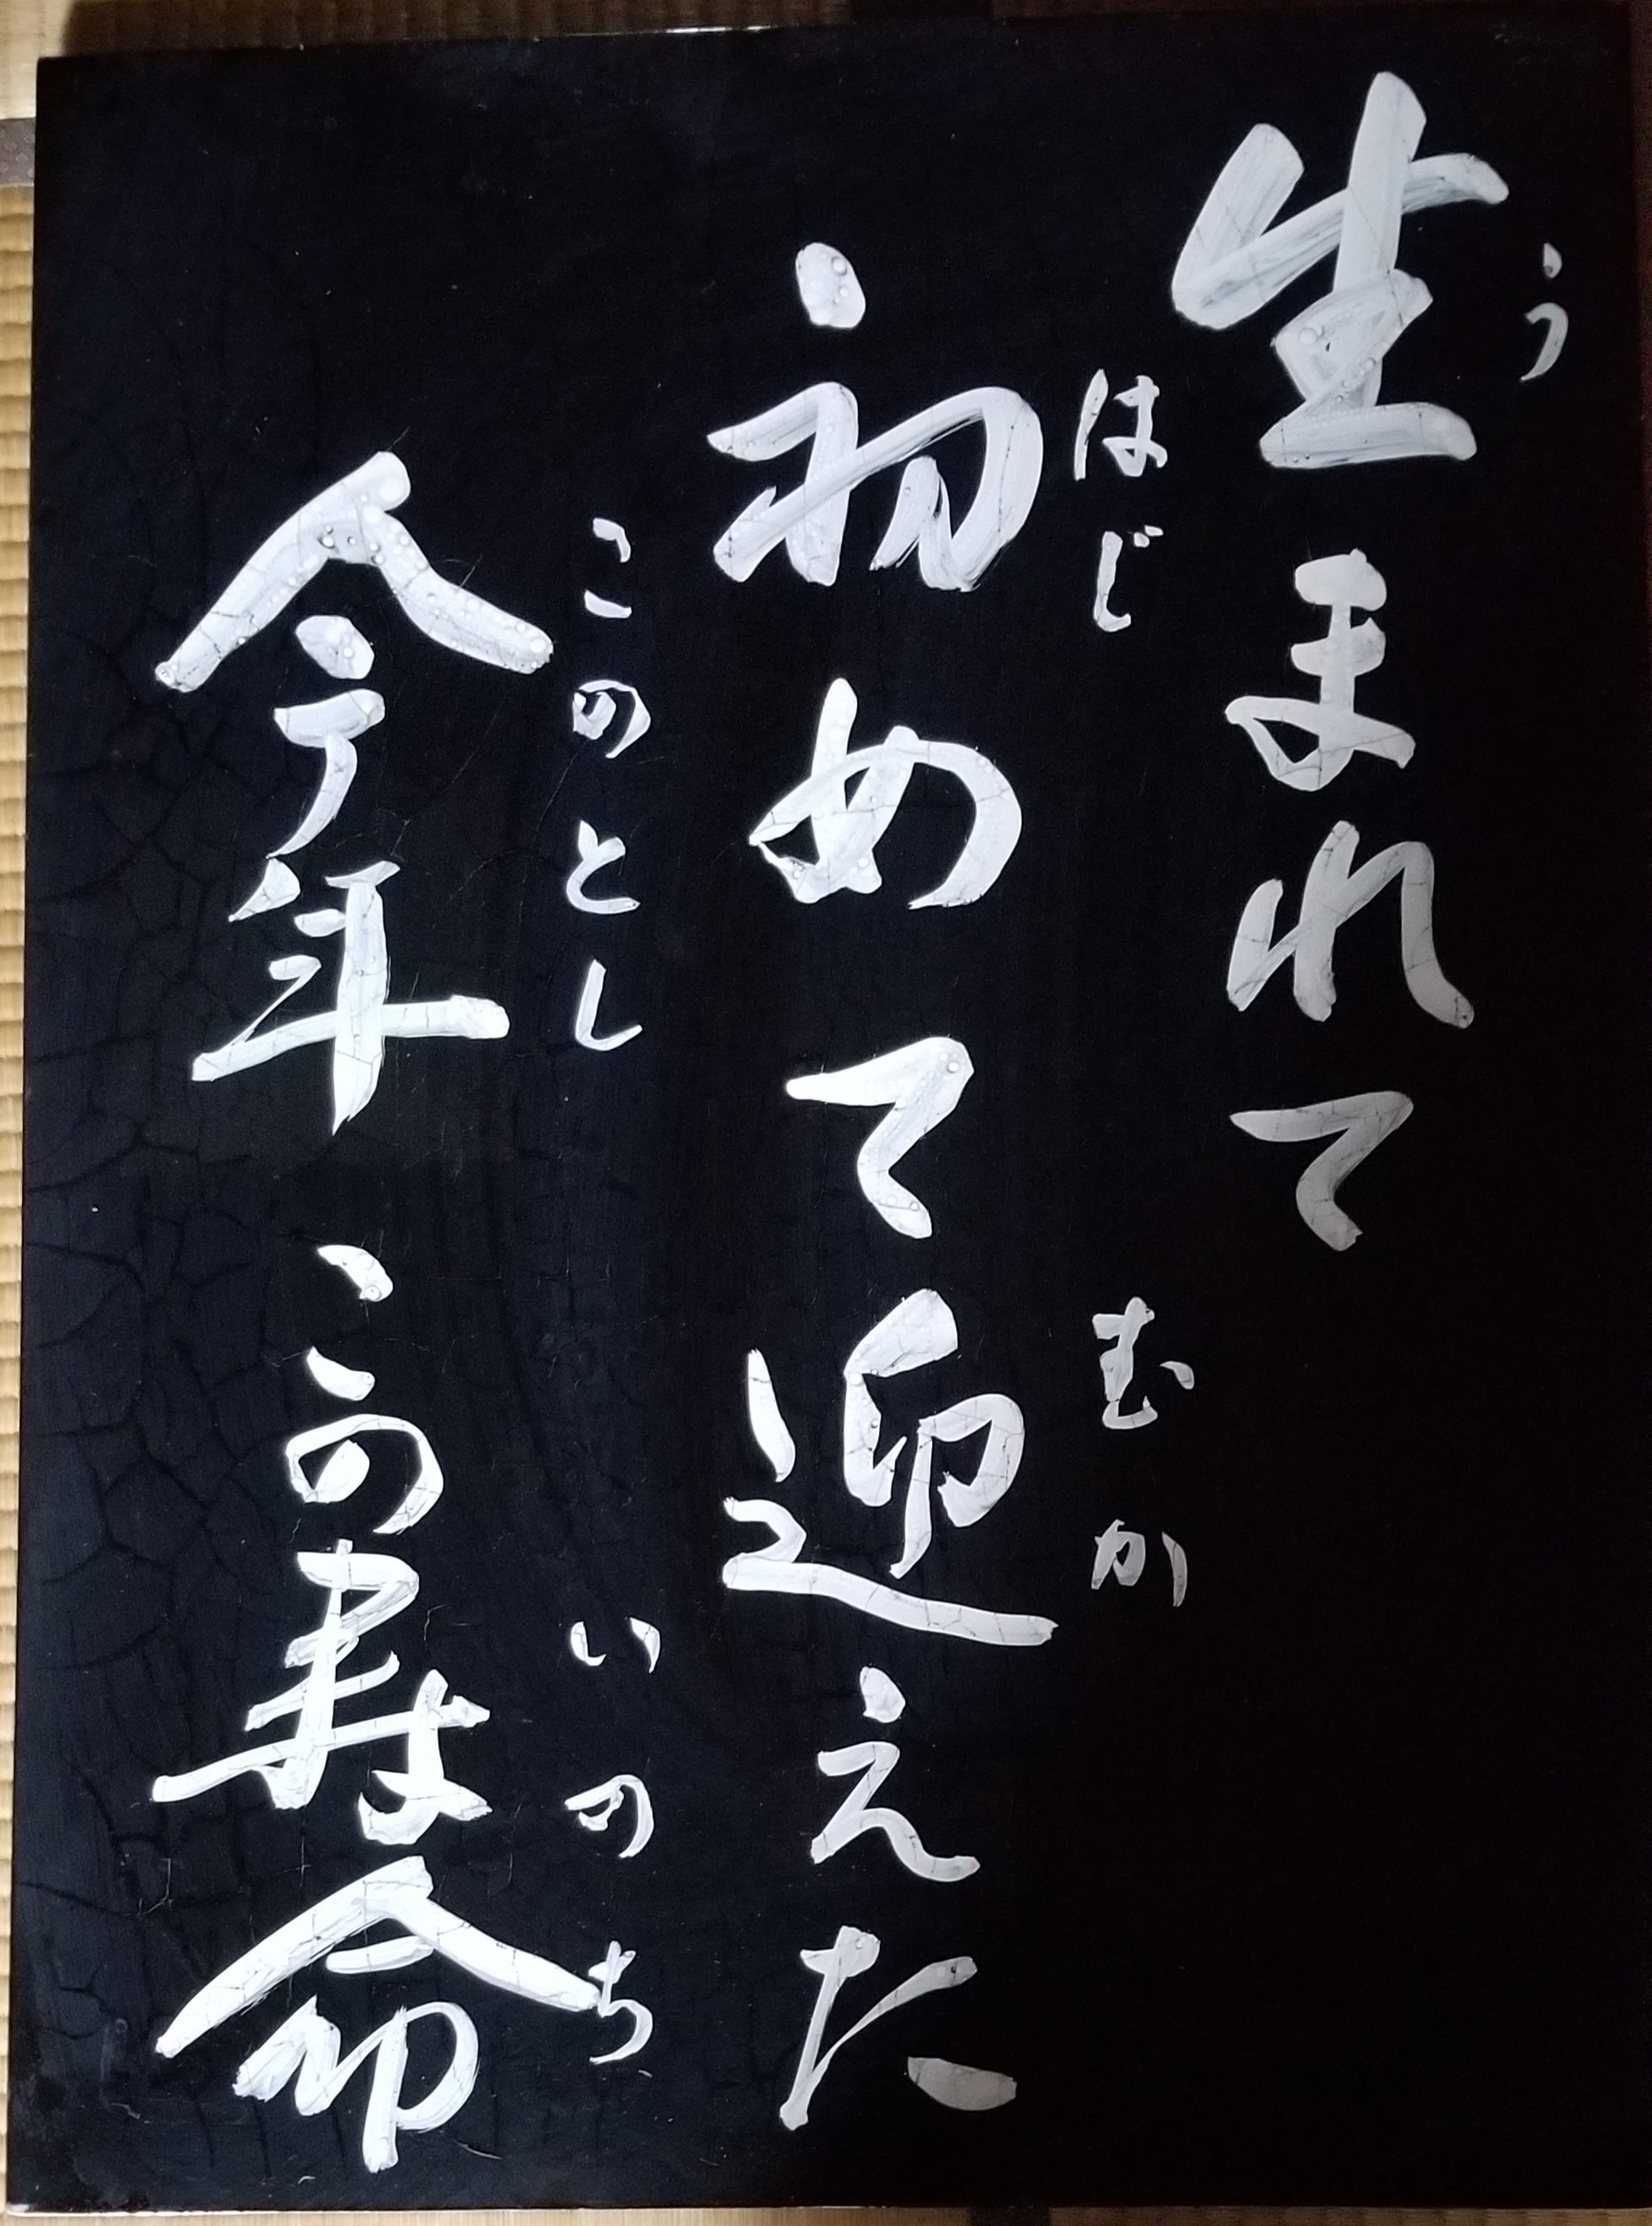 う
生まれて
はじ むか
初めて迎えた
このとし いのち
今年この寿命